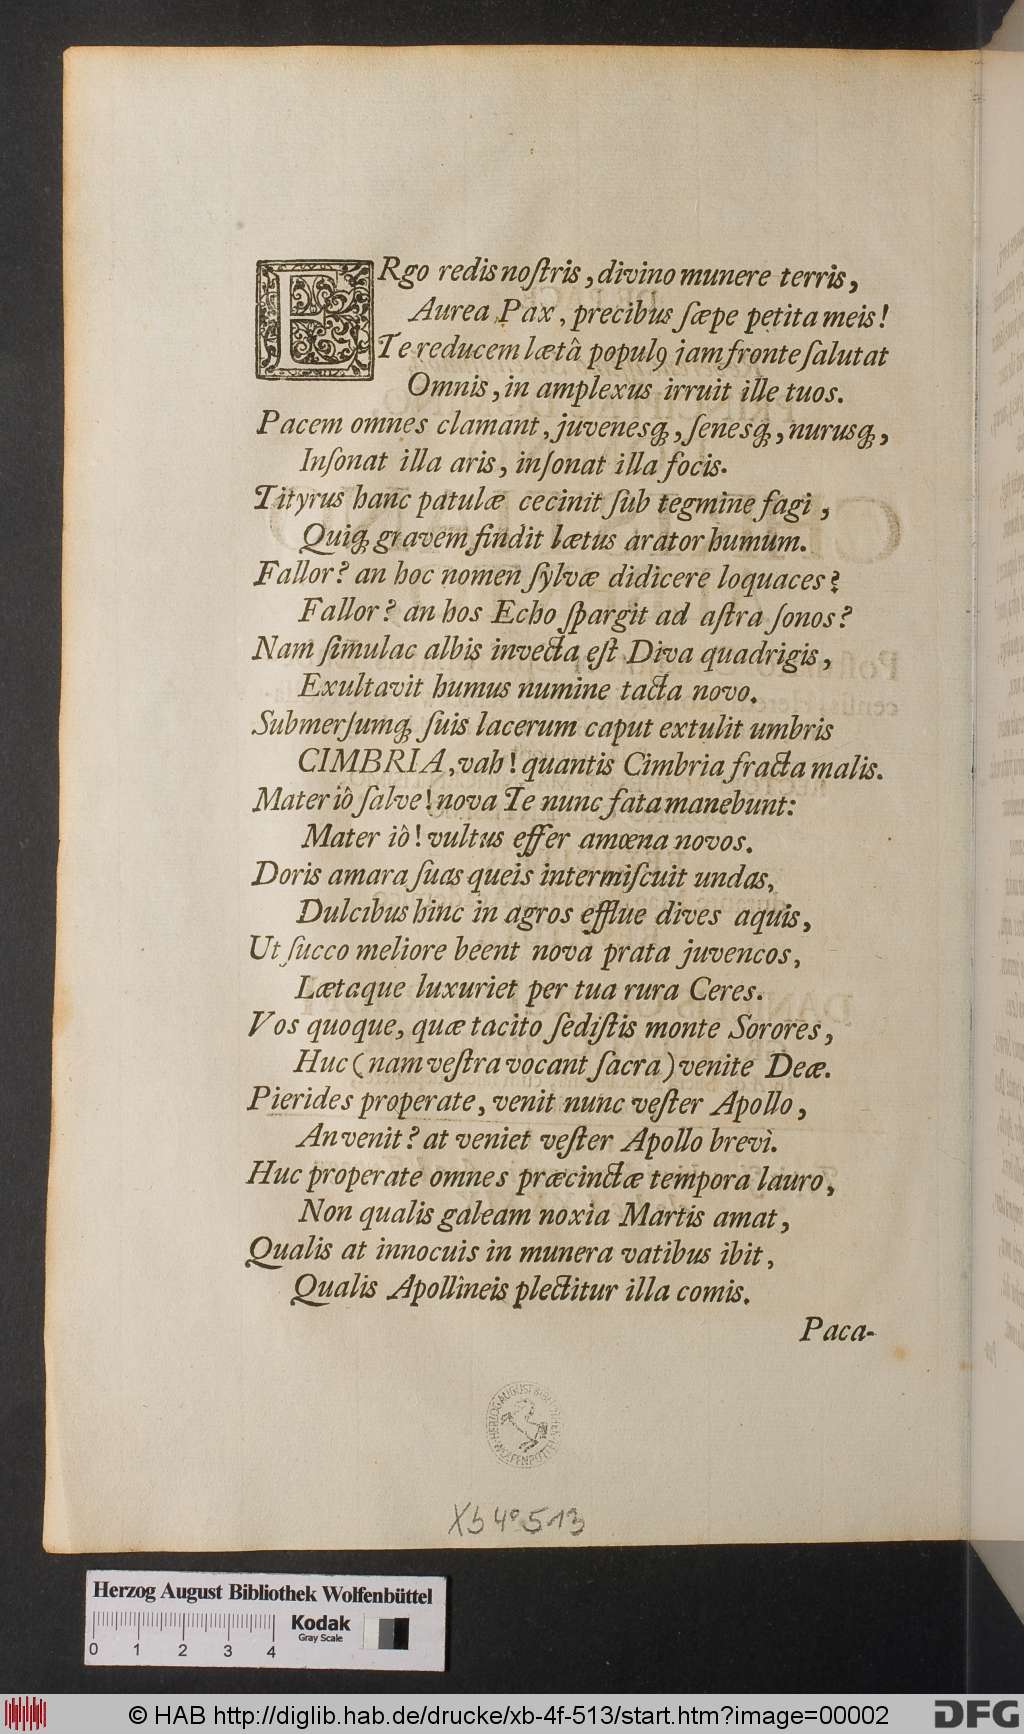 ERgo redis noſtris, divino munere terris,
Aurea Pax, precibus ſæpe petita meis!
Te reducem lætâ populꝰ jam fronte ſalutat
Omnis, in amplexus irruit ille tuos.
Pacem omnes clamant, juvenesq́;, ſenesq́;, nurusq́;,
Inſonat illa aris, inſonat illa focis.
Tityrus hanc patulæ cecinit ſub tegmine fagi,
Quiq́; gravem findit lætus arator humum.
Fallor? an hoc nomen ſylvæ didicere loquaces?
Fallor? an hos Echo ſpargit ad aſtra ſonos?
Nam ſimulac albis invecta eſt Diva quadrigis,
Exultavit humus numine tacta novo.
Submerſumq́; ſuis lacerum caput extulit umbris
CIMBRIA, vah! quantis Cimbria fracta malis.
Mater iô ſalve! nova Te nunc fata manebunt:
Mater iô! vultus effer amœna novos.
Doris amara ſuas queis intermiſcuit undas,
Dulcibus hinc in agros efflue dives aquis,
Ut ſucco meliore beent nova prata juvencos,
Lætaque luxuriet per tua rura Ceres.
Vos quoque, quæ tacito ſediſtis monte Sorores,
Huc (nam veſtra vocant ſacra) venite Deæ.
Pierides properate, venit nunc veſter Apollo,
An venit? at veniet veſter Apollo brevì.
Huc properate omnes præcinctæ tempora lauro,
Non qualis galeam noxia Martis amat,
Qualis at innocuis in munera vatibus ibit,
Qualis Apollineis plectitur illa comis.
Paca-
HERZOG AUGUST BIBLIOTHEK WOLFENBÜTTEL
Xb 4° 513
Herzog August Bibliothek Wolfenbüttel
0 1 2 3 4
Kodak
Gray Scale
© HAB http://diglib.hab.de/drucke/xb-4f-513/start.htm?image=00002
DFG